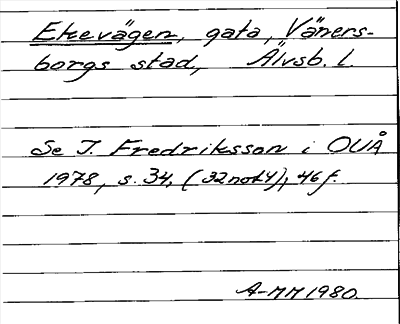 Ekevägen, gata, Väners-
borgs stad, Älvsb. l.
Se I. Fredriksson i OUÅ
1978, s. 34, (32 not 4), 46 f.
A-MM 1980.